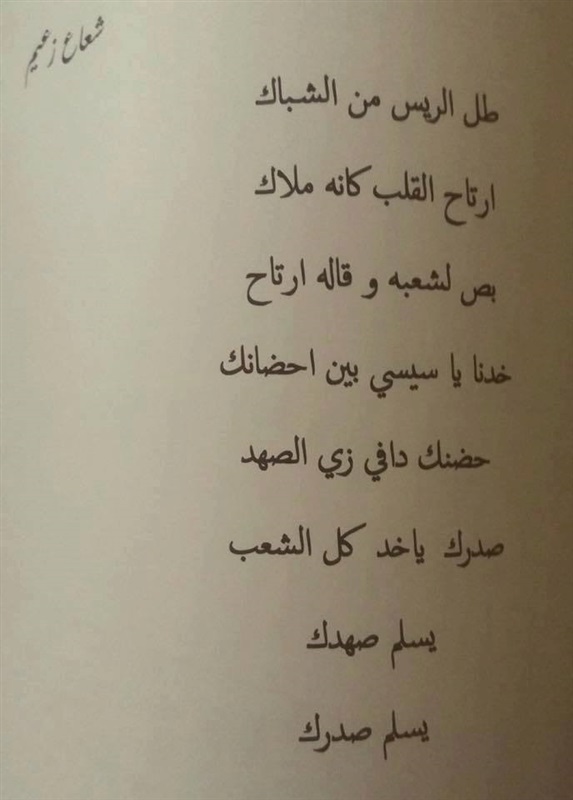 شعاع زعيم
طل الريس من الشباك
ارتاح القلب كانه ملاك
بص لشعبه و قاله ارتاح
خدنا يا سيسي بين احضانك
حضنك دافي زي الصهد
صدرك ياخد كل الشعب
يسلم صهدك
يسلم صدرك